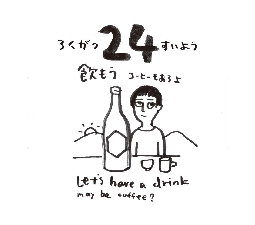 ろくがつ 24 すいよう
飲もう コーヒーもあるよ
Let's have a drink
may be coffee?